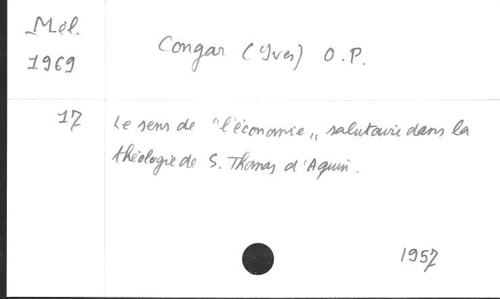 Mél.
1969
Congar (Yves) O.P.
17
Le sens de "l'économie„ salutaire dans la
théologie de S. Thomas d'Aquin.
1957